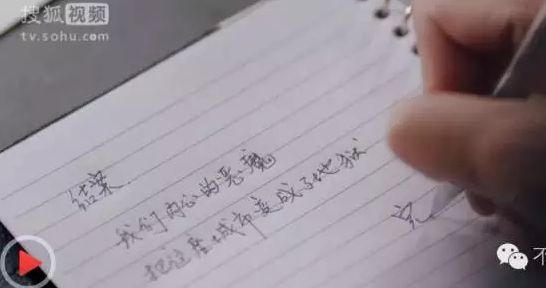 搜狐视频
tv.sohu.com
结案
我们内心的恶魔
把这座城市变成了地狱
完
不